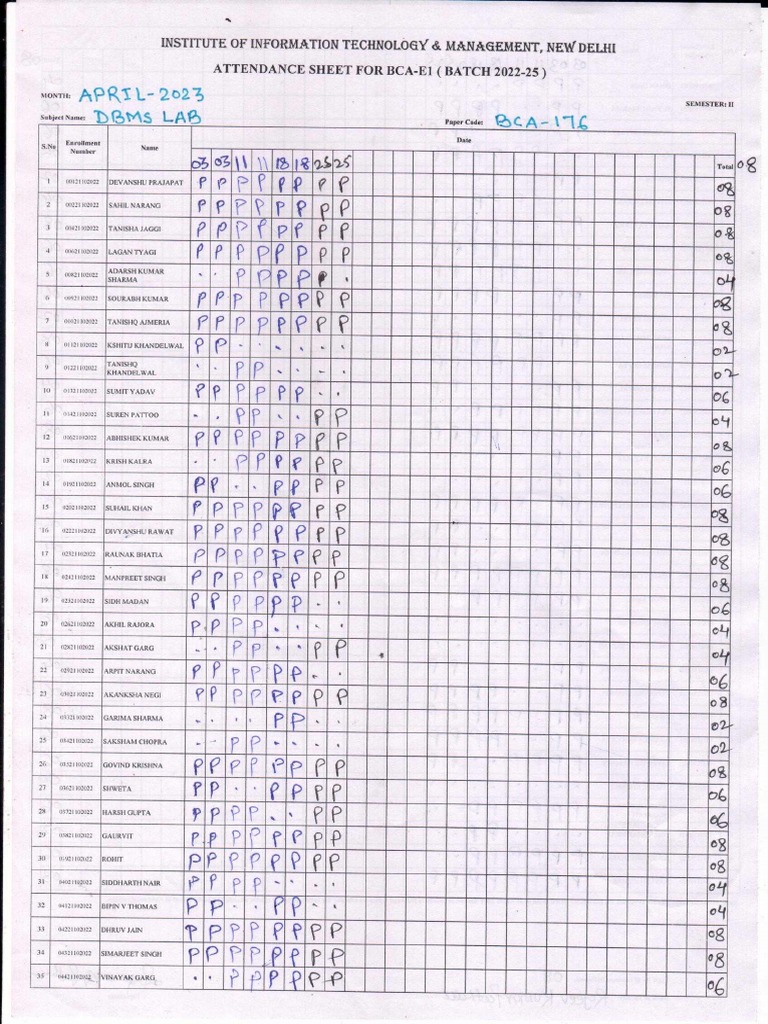 INSTITUTE OF INFORMATION TECHNOLOGY & MANAGEMENT, NEW DELHI
ATTENDANCE SHEET FOR BCA-E1 ( BATCH 2022-25 )
MONTH: APRIL-2023
SEMESTER: II
Subject Name: DBMS LAB Paper Code: BCA-176
S.No Enrollment Number Name Date
03 03 11 11 18 18 25 25 Total 08
1 00121102022 DEVANSHU PRAJAPAT P P P P P P P P 08
2 00221102022 SAHIL NARANG P P P P P P P P 08
3 00421102022 TANISHA JAGGI P P P P P P P P 08
4 00621102022 LAGAN TYAGI P P P P P P P P 08
5 00821102022 ADARSH KUMAR SHARMA . . P P P P P . 04
6 00921102022 SOURABH KUMAR P P P P P P P P 08
7 TANISHQ AJMERIA P P P P P P P P 08
8 01121102022 KSHITIJ KHANDELWAL P P . . . . . . 02
9 01221102022 TANISHQ KHANDELWAL . . P P . . . . 02
10 01321102022 SUMIT YADAV P P P P P P . . 06
11 01421102022 SUREN PATTOO . . P P . . P P 04
12 01621102022 ABHISHEK KUMAR P P P P P P P P 08
13 01821102022 KRISH KALRA . . P P P P P P 06
14 01921102022 ANMOL SINGH P P . . P P P P 06
15 02021102022 SUHAIL KHAN P P P P P P P P 08
16 02221102022 DIVYANSHU RAWAT P P P P P P P P 08
17 RAUNAK BHATIA P P P P P P P P 08
18 02421102022 MANPREET SINGH P P P P P P P P 08
19 SIDH MADAN P P P P P P . . 06
20 02621102022 AKHIL RAJORA P P P P . . . . 04
21 02821102022 AKSHAT GARG . . P P . . P P 04
22 02921102022 ARPIT NARANG P P P P P P . . 06
23 03021102022 AKANKSHA NEGI P P P P P P P P 08
24 03321102022 GARIMA SHARMA . . . . P P . . 02
25 SAKSHAM CHOPRA - - P P . . . . 02
26 GOVIND KRISHNA P P P P P P P P 08
27 03621102022 SHWETA P P . . P P P P 06
28 03721102022 HARSH GUPTA P P P P . . P P 06
29 03821102022 GAURVIT P P P P P P P P 08
30 ROHIT P P P P P P P P 08
31 04021102022 SIDDHARTH NAIR P P P P . . . . 04
32 04121102022 BIPIN V THOMAS P P . . P P . . 04
33 04221102022 DHRUV JAIN P P P P P P P P 08
34 04321102022 SIMARJEET SINGH P P P P P P P P 08
35 04421102022 VINAYAK GARG . . P P P P P P 06